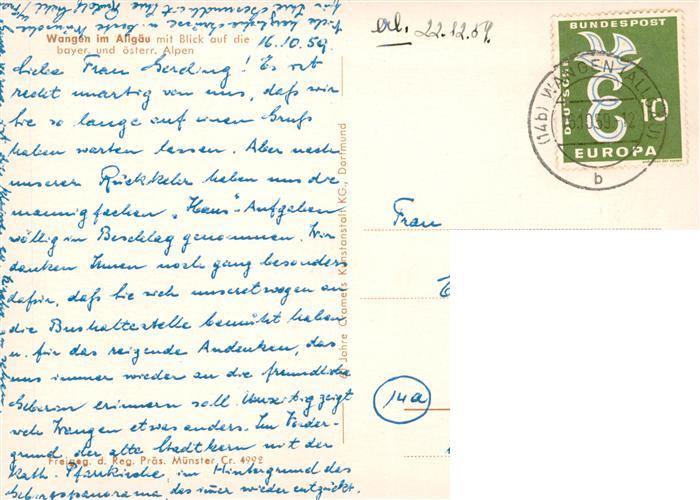 Wangen im Allgäu mit Blick auf die
bayer. und österr. Alpen
16.10.59.
Liebe Frau Gerding! Es ist
recht unartig von uns, daß wir
Sie so lange auf einen Gruß
haben warten lassen. Aber nach
unserer Rückkehr haben uns die
mannigfachen „Haus"-Aufgaben
völlig in Beschlag genommen. Wir
danken Ihnen noch ganz besonders
dafür, daß Sie sich unseretwegen an
die Bushaltestelle bemüht haben
u. für das reizende Andenken, das
uns immer wieder an die freundliche
Geberin erinnern soll. Umseitig zeigt
sich Wangen etwas anders. Im Vorder-
grund der alte Stadtkern mit der
Kath. Pfarrkirche, im Hintergrund das
Gebirgspanorama, das immer wieder entzückt.
Freigeg. d. Reg. Präs. Münster Cr. 4992
Jahre Cramers Kunstanstalt KG., Dortmund
erl. 22.12.59.
DEUTSCHE BUNDESPOST
10
EUROPA
(14b) WANGEN (ALLGÄU)
10.59
b
Frau
14a